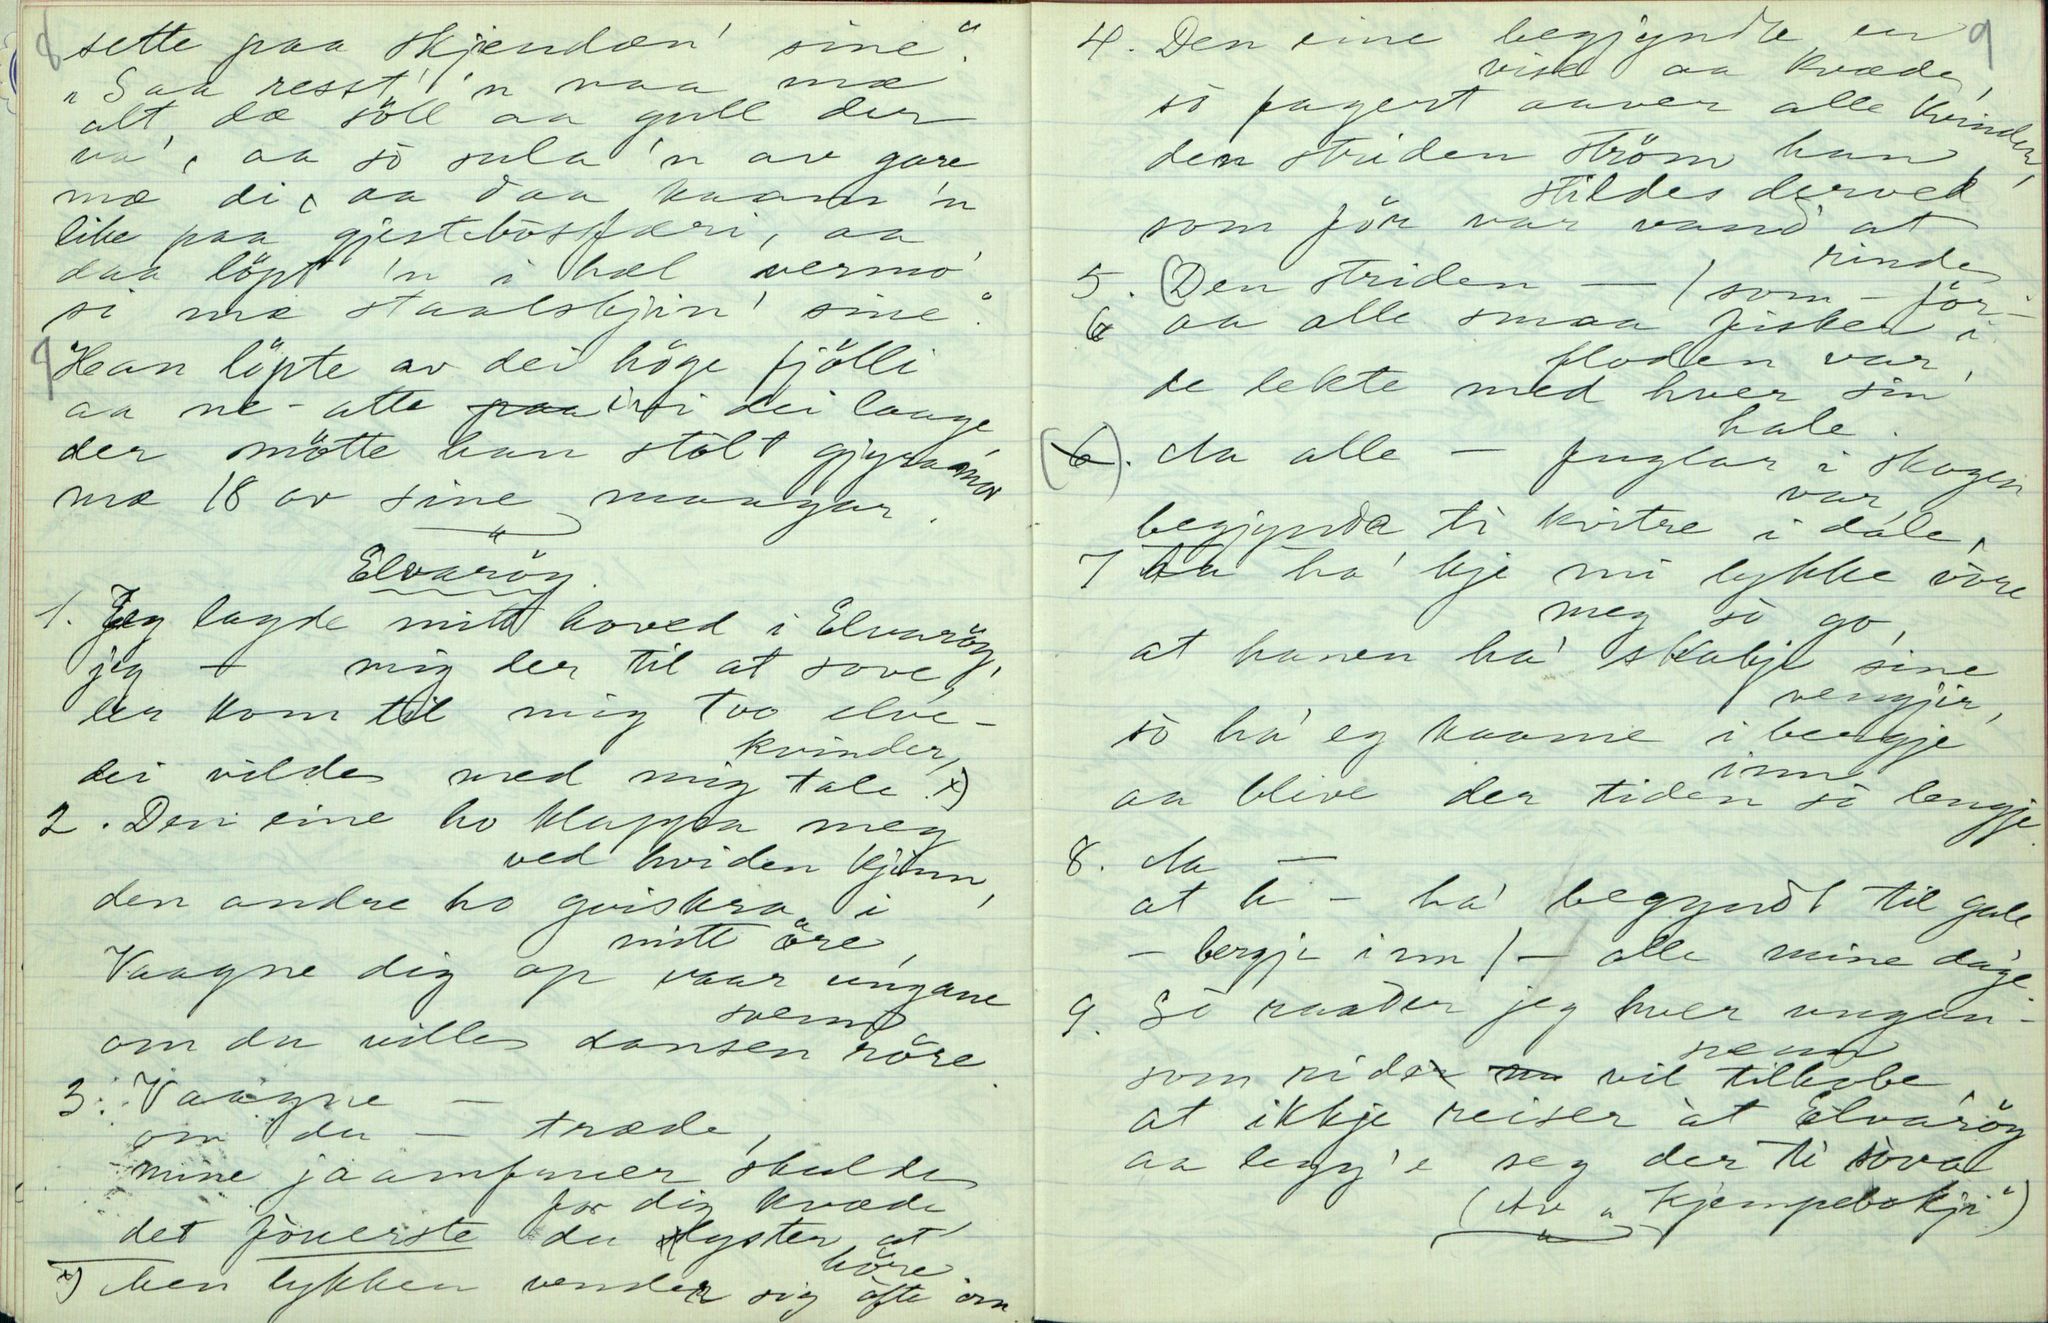 8
sette paa skjendæn' sine".
"Saa resst 'n naa mæ
alt, dæ söll aa gull der
va', aa sò sula 'n av gare
mæ di, aa daa kaam 'n
like paa gjestebòsfæri, aa
daa löpt 'n i hæl vermo'
si mæ staalskjin' sine".
9 Han löpte av dei höge fjölli
aa ne-atte i dei laage
der mötte han stolt gjyramor
mæ 18 av sine maagar.
Elvaröy.
1. Jeg lagde mitt hoved i Elvaröy,
jeg — mig der til at sove,
der kom til mig tvo elve-
kvinder,
dei vilde med mig tale. x)
2. Den eine ho klappa meg
ved hviden kjinn,
den andre ho gviskra i
mitt öre,
Vaagne dig op vaar ungane
svend
om du ville dansen röre.
3. Vaagne —
om du — træde,
mine jaamfruer skulde
for dig kvæde
det fòuerste du lyster at
höre.
x) Men lykken vender sig ofte om
9
4. Den eine begjynde en
vise aa kvæde,
sò fagert aaver alle kvinder,
den striden ström han
stildes derved
som för var vand at
rinde
5. (Den striden — / som — för —
6 aa alle smaa fisker i
floden var,
de lekte med hver sin
hale.
(6). Aa alle — fuglar i skogen
var
begjynde ti kvitre i dale,
7 Aa ha' kje mi lykke vöre
meg sò go,
at hanen ha' skakje sine
vengjir,
sò ha' eg kaame i bergje
inn
aa blive der tiden sò lengje.
8. Aa —
at h — ha' begyndt til gale
— bergje inn / — alle mine dage.
9. Sò raader jeg hver ungan-
svenn
som ride vil tilhobe
at ikkje reiser àt Elvaröy
aa legg'e seg der ti sòva
(Av "Kjempebokji")